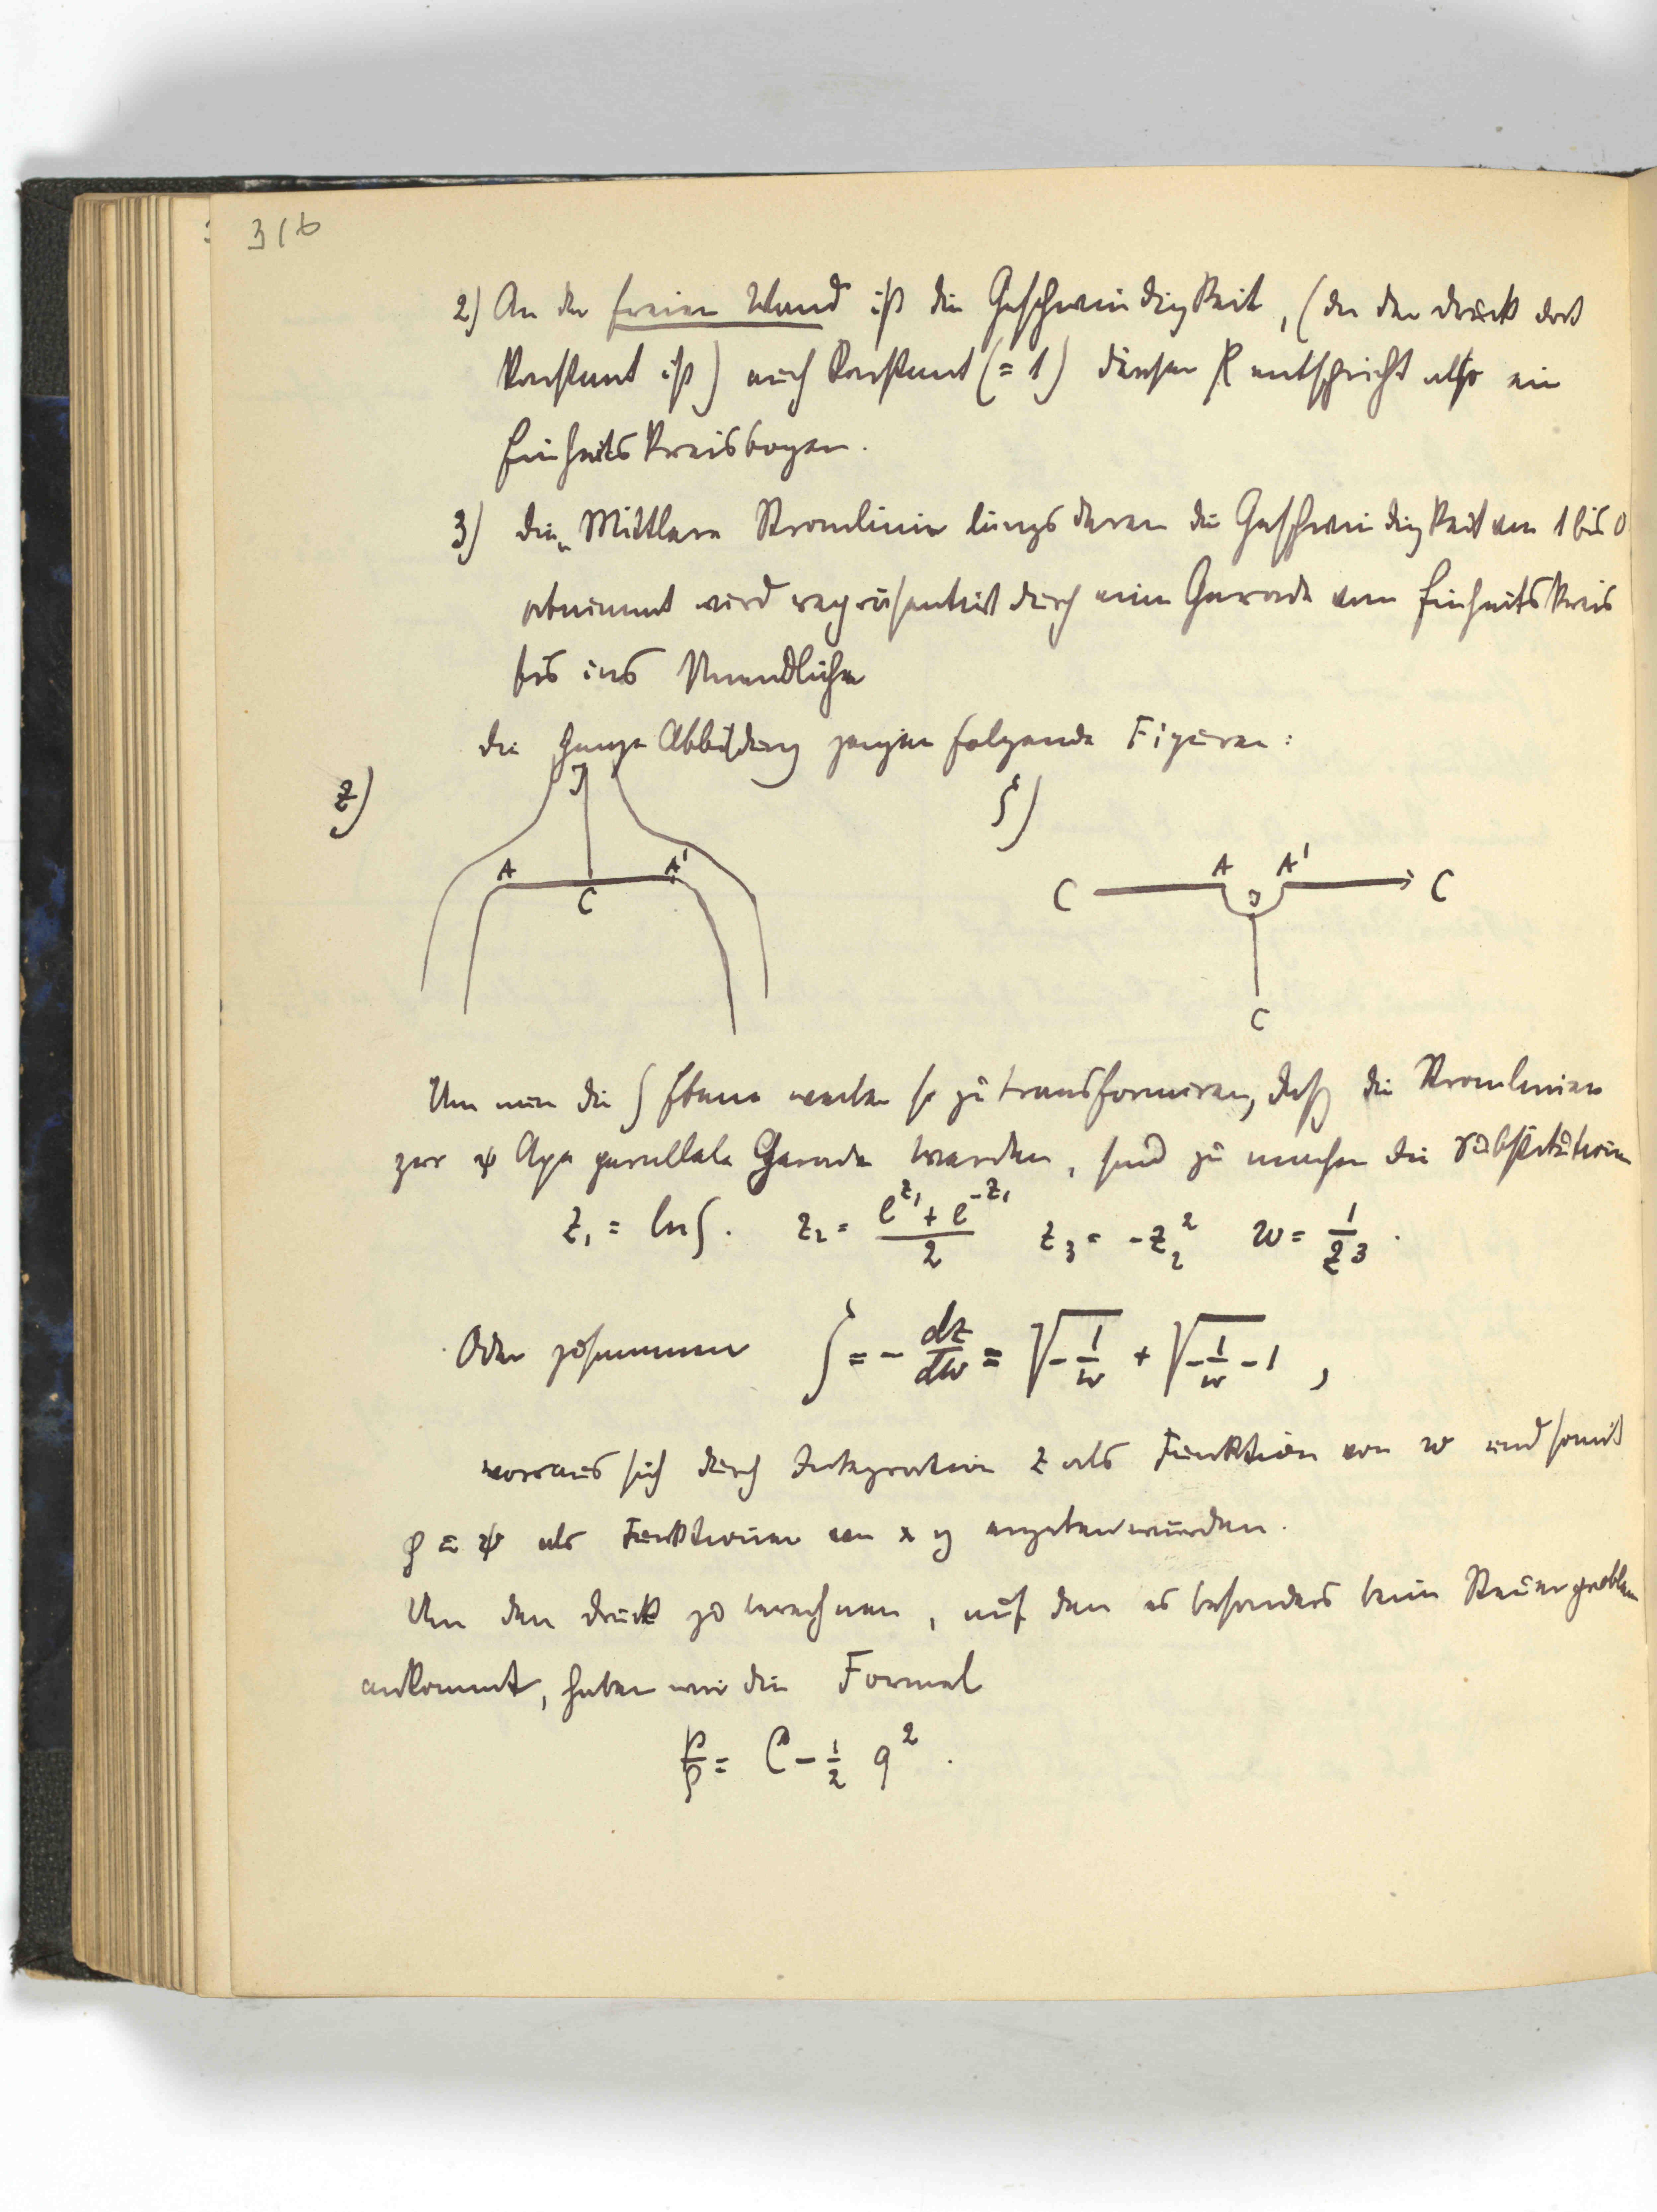 316
2) An der freien Wand ist die Geschwindigkeit, (da der Druck dort
konstant ist) auch konstant (= 1) diesen entspricht also ein
Einheitskreisbogen.
3) Die Mittlere Stromlinie längs deren die Geschwindigkeit von 1 bis 0
abnimmt wird repräsentiert durch eine Gerade vom Einheitskreis
bis ins Unendliche
Die ganze Abbildung zeigen folgende Figuren:
z)
J
A
C
A'
ζ)
C
A
J
A'
C
C
Um nun die ζ Ebene weiter so zu transformieren, daß die Stromlinien
zur ψ Axe parallele Gerade werden, sind zu machen die Substitution
z₁ = ln ζ. z₂ = (e^{z₁} + e^{-z₁})/2 z₃ = -z₂² w = 1/z₃.
Oder zusammen ζ = - dz/dw = √(-1/w) + √(-1/w - 1),
woraus sich durch Integration z als Funktion von w und somit
φ u ψ als Funktionen von x y ergeben würden.
Um den Druck zu berechnen, auf den es besonders beim Steuerproblem
ankommt, haben wir die Formel
p/ρ = C - 1/2 q².